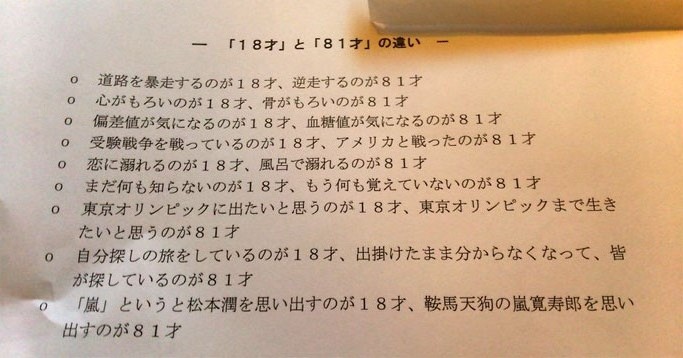 ― 「１８才」と「８１才」の違い ―
o 道路を暴走するのが１８才、逆走するのが８１才
o 心がもろいのが１８才、骨がもろいのが８１才
o 偏差値が気になるのが１８才、血糖値が気になるのが８１才
o 受験戦争を戦っているのが１８才、アメリカと戦ったのが８１才
o 恋に溺れるのが１８才、風呂で溺れるのが８１才
o まだ何も知らないのが１８才、もう何も覚えていないのが８１才
o 東京オリンピックに出たいと思うのが１８才、東京オリンピックまで生き
たいと思うのが８１才
o 自分探しの旅をしているのが１８才、出掛けたまま分からなくなって、皆
が探しているのが８１才
o 「嵐」というと松本潤を思い出すのが１８才、鞍馬天狗の嵐寛寿郎を思い
出すのが８１才